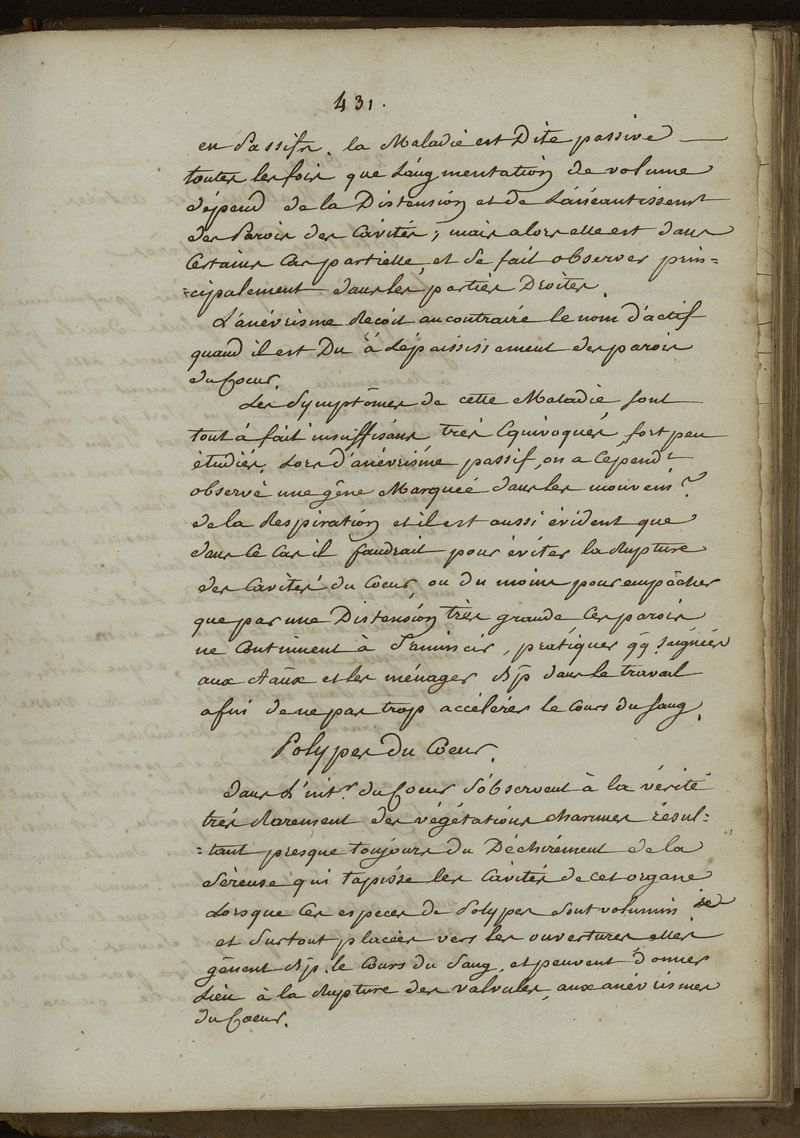 431.
en Passifs. la Maladie est Dite passive
toutes les fois que L'augmentation de volume
dépend de la Distension et de L'anéantissemt
des Parois des Cavités ; mais alors elle est dans
Certains Cas partielle, et Se fait observer prin=
=cipalement dans les parties Droites.
L'anévrisme Reçoit au contraire le nom d'actif
quand il est Du à L'épaississement des parois
du Coeur.
Les Symptômes de cette Maladie sont
tout à fait insuffisans, très Equivoques, fort peu
étudiés, Lors d'anévrisme passif, on a Cependt
observé une gêne Marquée dans les mouvems
de la Respiration et il est aussi évident que
dans Ce Cas il faudrait pour éviter la Rupture
des Cavités du Coeur, ou du moins pour empêcher
que par une Distension très grande Ces parois
ne Continuent à S'amincir, pratiquer qq Saignées
aux et les ménager dans le travail
afin de ne pas trop accélérer le Cours du Sang.
Polypes Du Coeur.
dans L'intr du Coeur S'observent à la vérité
très Rarement des végétations charnues résul=
=tant presque toujours du Déchirement de la
Séreuse qui tapisse les Cavités de cet organe
Lorsque Ces espèces de Polypes Sont volumin ses
et Surtout placées vers les ouvertures elles
gênent le Cours du Sang, et peuvent donner
Lieu à la Rupture des valvules, aux anévrismes
du Coeur.